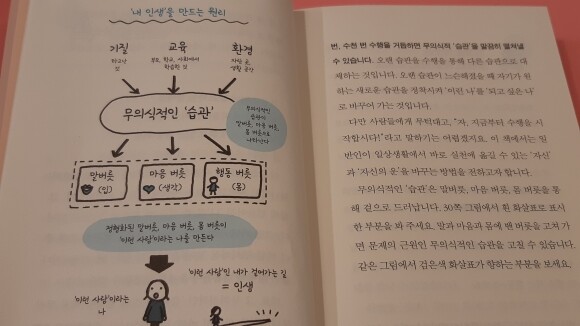 '내 인생'을 만드는 원리
기질 교육 환경
타고난 것
부모, 학교, 사회에서 학습한 것
자란 곳, 생활 공간
무의식적인 '습관'
무의식적인
습관이
말버릇, 마음 버릇,
몸 버릇으로
나타난다
말버릇 (입)
마음 버릇 (생각)
행동 버릇 (몸)
정형화된 말버릇, 마음 버릇, 몸 버릇이
'이런 사람'이라는 나를 만든다
'이런 사람'이라는
나
'이런 사람'인 내가 걸어가는 길
= 인생
번, 수천 번 수행을 거듭하면 무의식적 '습관'을 말끔히 떨쳐낼
수 있습니다. 오랜 습관을 수행을 통해 다른 습관으로 대
체하는 것입니다. 오랜 습관이 느슨해졌을 때 자기가 원
하는 새로운 습관을 정착시켜 '이런 나'를 '되고 싶은 나'
로 바꾸어 가는 것입니다.
다만 사람들에게 무턱대고, "자, 지금부터 수행을 시
작합시다!"라고 말하기는 어렵겠지요. 이 책에서는 일
반인이 일상생활에서 바로 실천에 옮길 수 있는 '자신'
과 '자신의 운'을 바꾸는 방법을 전하고자 합니다.
무의식적인 '습관'은 말버릇, 마음 버릇, 몸 버릇을 통
해 겉으로 드러납니다. 30쪽 그림에서 흰 화살표로 표시
한 부분을 봐 주세요. 말과 마음과 몸에 밴 버릇을 고쳐 가
면 문제의 근원인 무의식적인 습관을 고칠 수 있습니다.
같은 그림에서 검은색 화살표가 향하는 부분을 보세요.